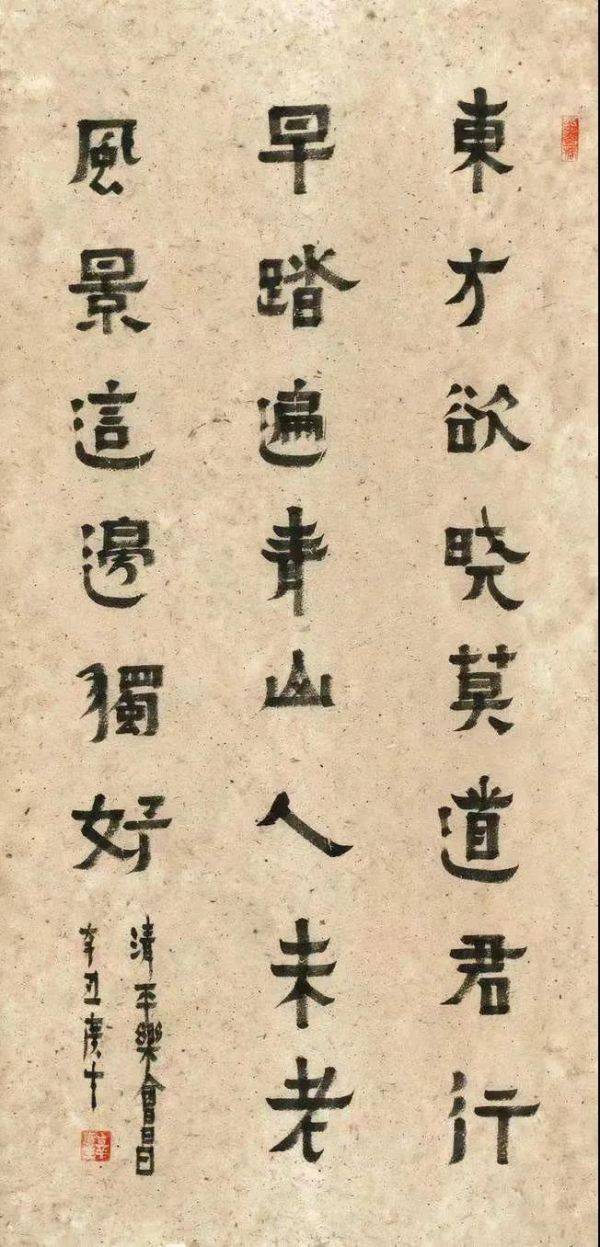 東方欲晓莫道君行
早踏遍青山人未老
風景這邊獨好
清平樂會昌
辛丑廣士